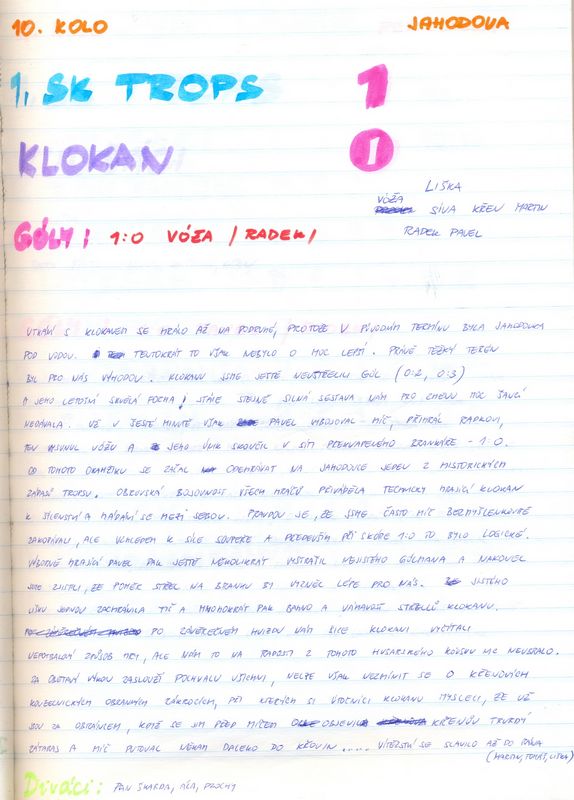 10. KOLO JAHODOVA
1. SK TROPS 1
KLOKAN 1
LIŠKA
VÓŽA SÍVA KŘEN MARTIN
RADEK PAVEL
GÓLY: 1:0 VÓŽA /RADEK/
UTKÁNÍ S KLOKANEM SE HRÁLO AŽ NA PODRUHÉ, PROTOŽE V PŮVODNÍM TERMÍNU BYLA JAHODOVKA
POD VODOU. TENTOKRÁT TO VŠAK NEBYLO O MOC LEPŠÍ. PRÁVĚ TĚŽKÝ TERÉN
BYL PRO NÁS VÝHODOU. KLOKANU JSME JEŠTĚ NEVSTŘELILI GÓL (0:2, 0:3)
A JEHO LETOŠNÍ SKVĚLÁ FORMA, STÁLE STEJNĚ SILNÁ SESTAVA NÁM PRO ZMĚNU MOC ŠANCÍ
NEDÁVALA. UŽ V ŠESTÉ MINUTĚ VŠAK PAVEL VYBOJOVAL MÍČ, PŘIHRÁL RADKOVI,
TEN VYSUNUL VÓŽU A JEHO ÚNIK SKONČIL V SÍTI PŘEKVAPENÉHO BRANKÁŘE - 1:0.
OD TOHOTO OKAMŽIKU SE ZAČAL ODEHRÁVAT NA JAHODOVCE JEDEN Z HISTORICKÝCH
ZÁPASŮ TROPSU. OBROVSKÁ BOJOVNOST VŠECH HRÁČŮ PŘIVÁDĚLA TECHNICKY HRAJÍCÍ KLOKAN
K ŠÍLENSTVÍ A HÁDÁNÍ SE MEZI SEBOU. PRAVDOU JE, ŽE JSME ČASTO MÍČ BEZMYŠLENKOVITĚ
ZAKOPÁVALI, ALE VZHLEDEM K SÍLE SOUPEŘE A PŘEDEVŠÍM PŘI SKÓRE 1:0 TO BYLO LOGICKÉ.
VÝBORNĚ HRAJÍCÍ PAVEL PAK JEŠTĚ NĚKOLIKRÁT VYSTRAŠIL NEJISTÉHO GÓLMANA A NAKONEC
JSME ZJISTILI, ŽE POMĚR STŘEL NA BRANKU BY VYZNĚL LÉPE PRO NÁS. JISTÉHO
LIŠKU JEDNOU ZACHRÁNILA TYČ A MNOHOKRÁT PAK BAHNO A VÁHAVOST STŘELCŮ KLOKANU.
PO ZÁVĚREČNÉM HVIZDU NÁM SICE KLOKANI VYČÍTALI
NEFOTBALOVÝ ZPŮSOB HRY, ALE NÁM TO NA RADOSTI Z TOHOTO HUSARSKÉHO KOUSKU NIC NEUBRALO.
ZA OBĚTAVÝ VÝKON ZASLOUŽÍ POCHVALU VŠICHNI, NELZE VŠAK NEZMÍNIT SE O KŘENOVÝCH
KOUZELNICKÝCH OBRANNÝCH ZÁKROCÍCH, PŘI KTERÝCH SI ÚTOČNÍCI KLOKANU MYSLELI, ŽE UŽ
JSOU ZA OBRÁNCEM, KDYŽ SE JIM PŘED MÍČEM OBJEVILA KŘENŮV TVRDÝ
ZÁTARAS A MÍČ PUTOVAL NĚKAM DALEKO DO KŘOVIN..... VÍTĚZSTVÍ SE SLAVILO AŽ DO RÁNA
(MARTIN, TOMÁŠ, LIŠKA)
Diváci: PAN ŠKARDA,